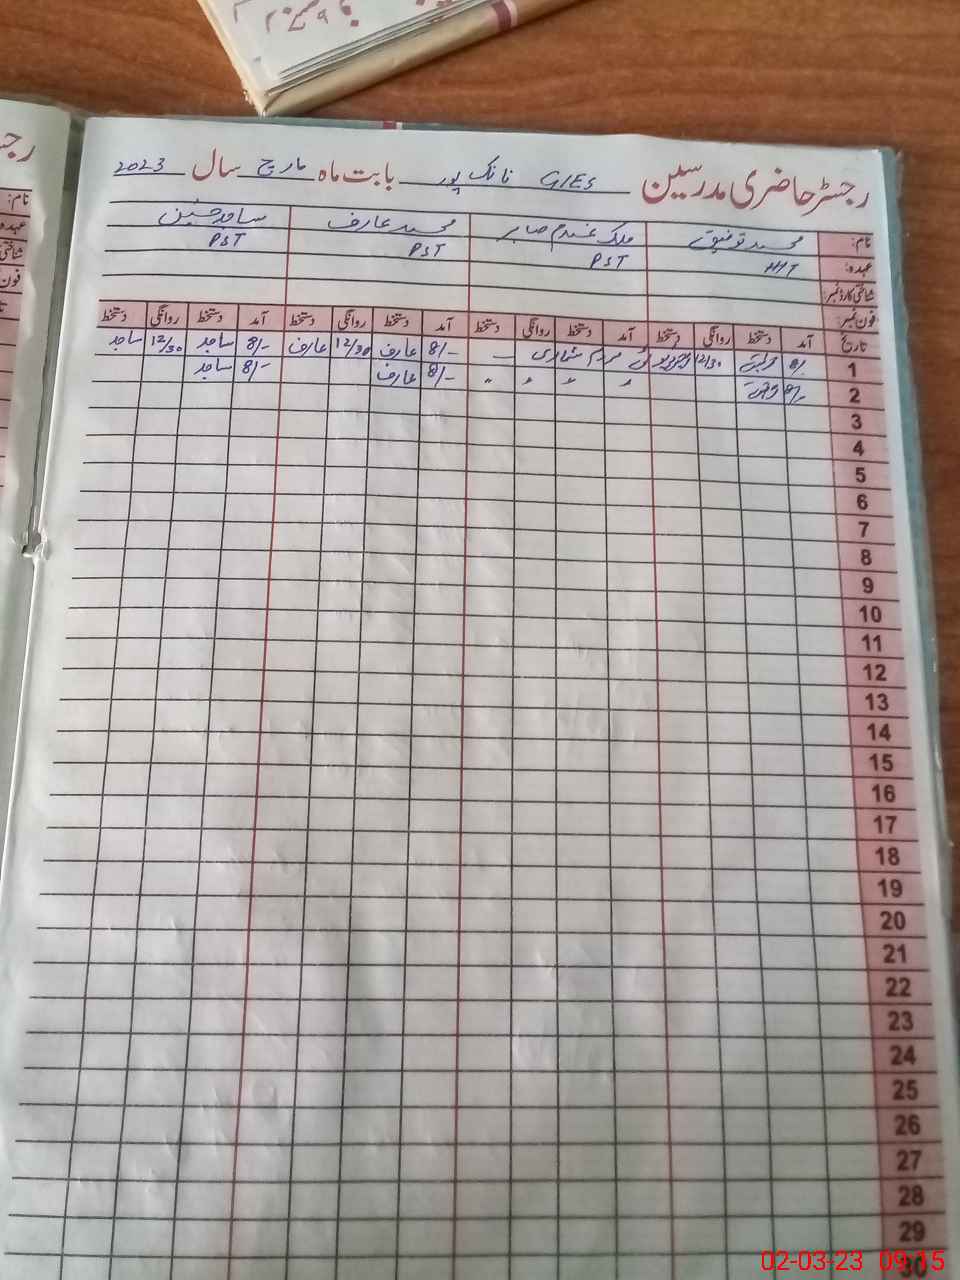 رجسٹر حاضری مدرسین GIES نانک پور بابت ماہ مارچ سال 2023
نام: محمد توفیق ملک غلام صابر محمد عارف ساجد حسین
عہدہ: PST PST PST
شناختی کارڈ نمبر:
فون نمبر:
تاریخ آمد دستخط روانگی دستخط آمد دستخط روانگی دستخط آمد دستخط روانگی دستخط آمد دستخط روانگی دستخط
1 8/- 12/30 مردم شماری 8/- عارف 12/30 عارف 8/- ساجد 12/30 ساجد
2 8/- " " " " 8/- عارف 8/- ساجد
3
4
5
6
7
8
9
10
11
12
13
14
15
16
17
18
19
20
21
22
23
24
25
26
27
28
29
30
02-03-23 09:15
رجس
نام:
عہدہ
شناختی
فون